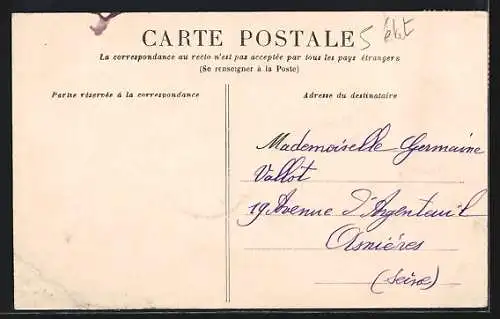 CARTE POSTALE 5 état
La correspondance au recto n'est pas acceptée par tous les pays étrangers
(Se renseigner à la Poste)
Partie réservée à la correspondance
Adresse du destinataire
Mademoiselle Germaine
Vallot
19 Avenue d'Argenteuil
Asnières
(Seine)